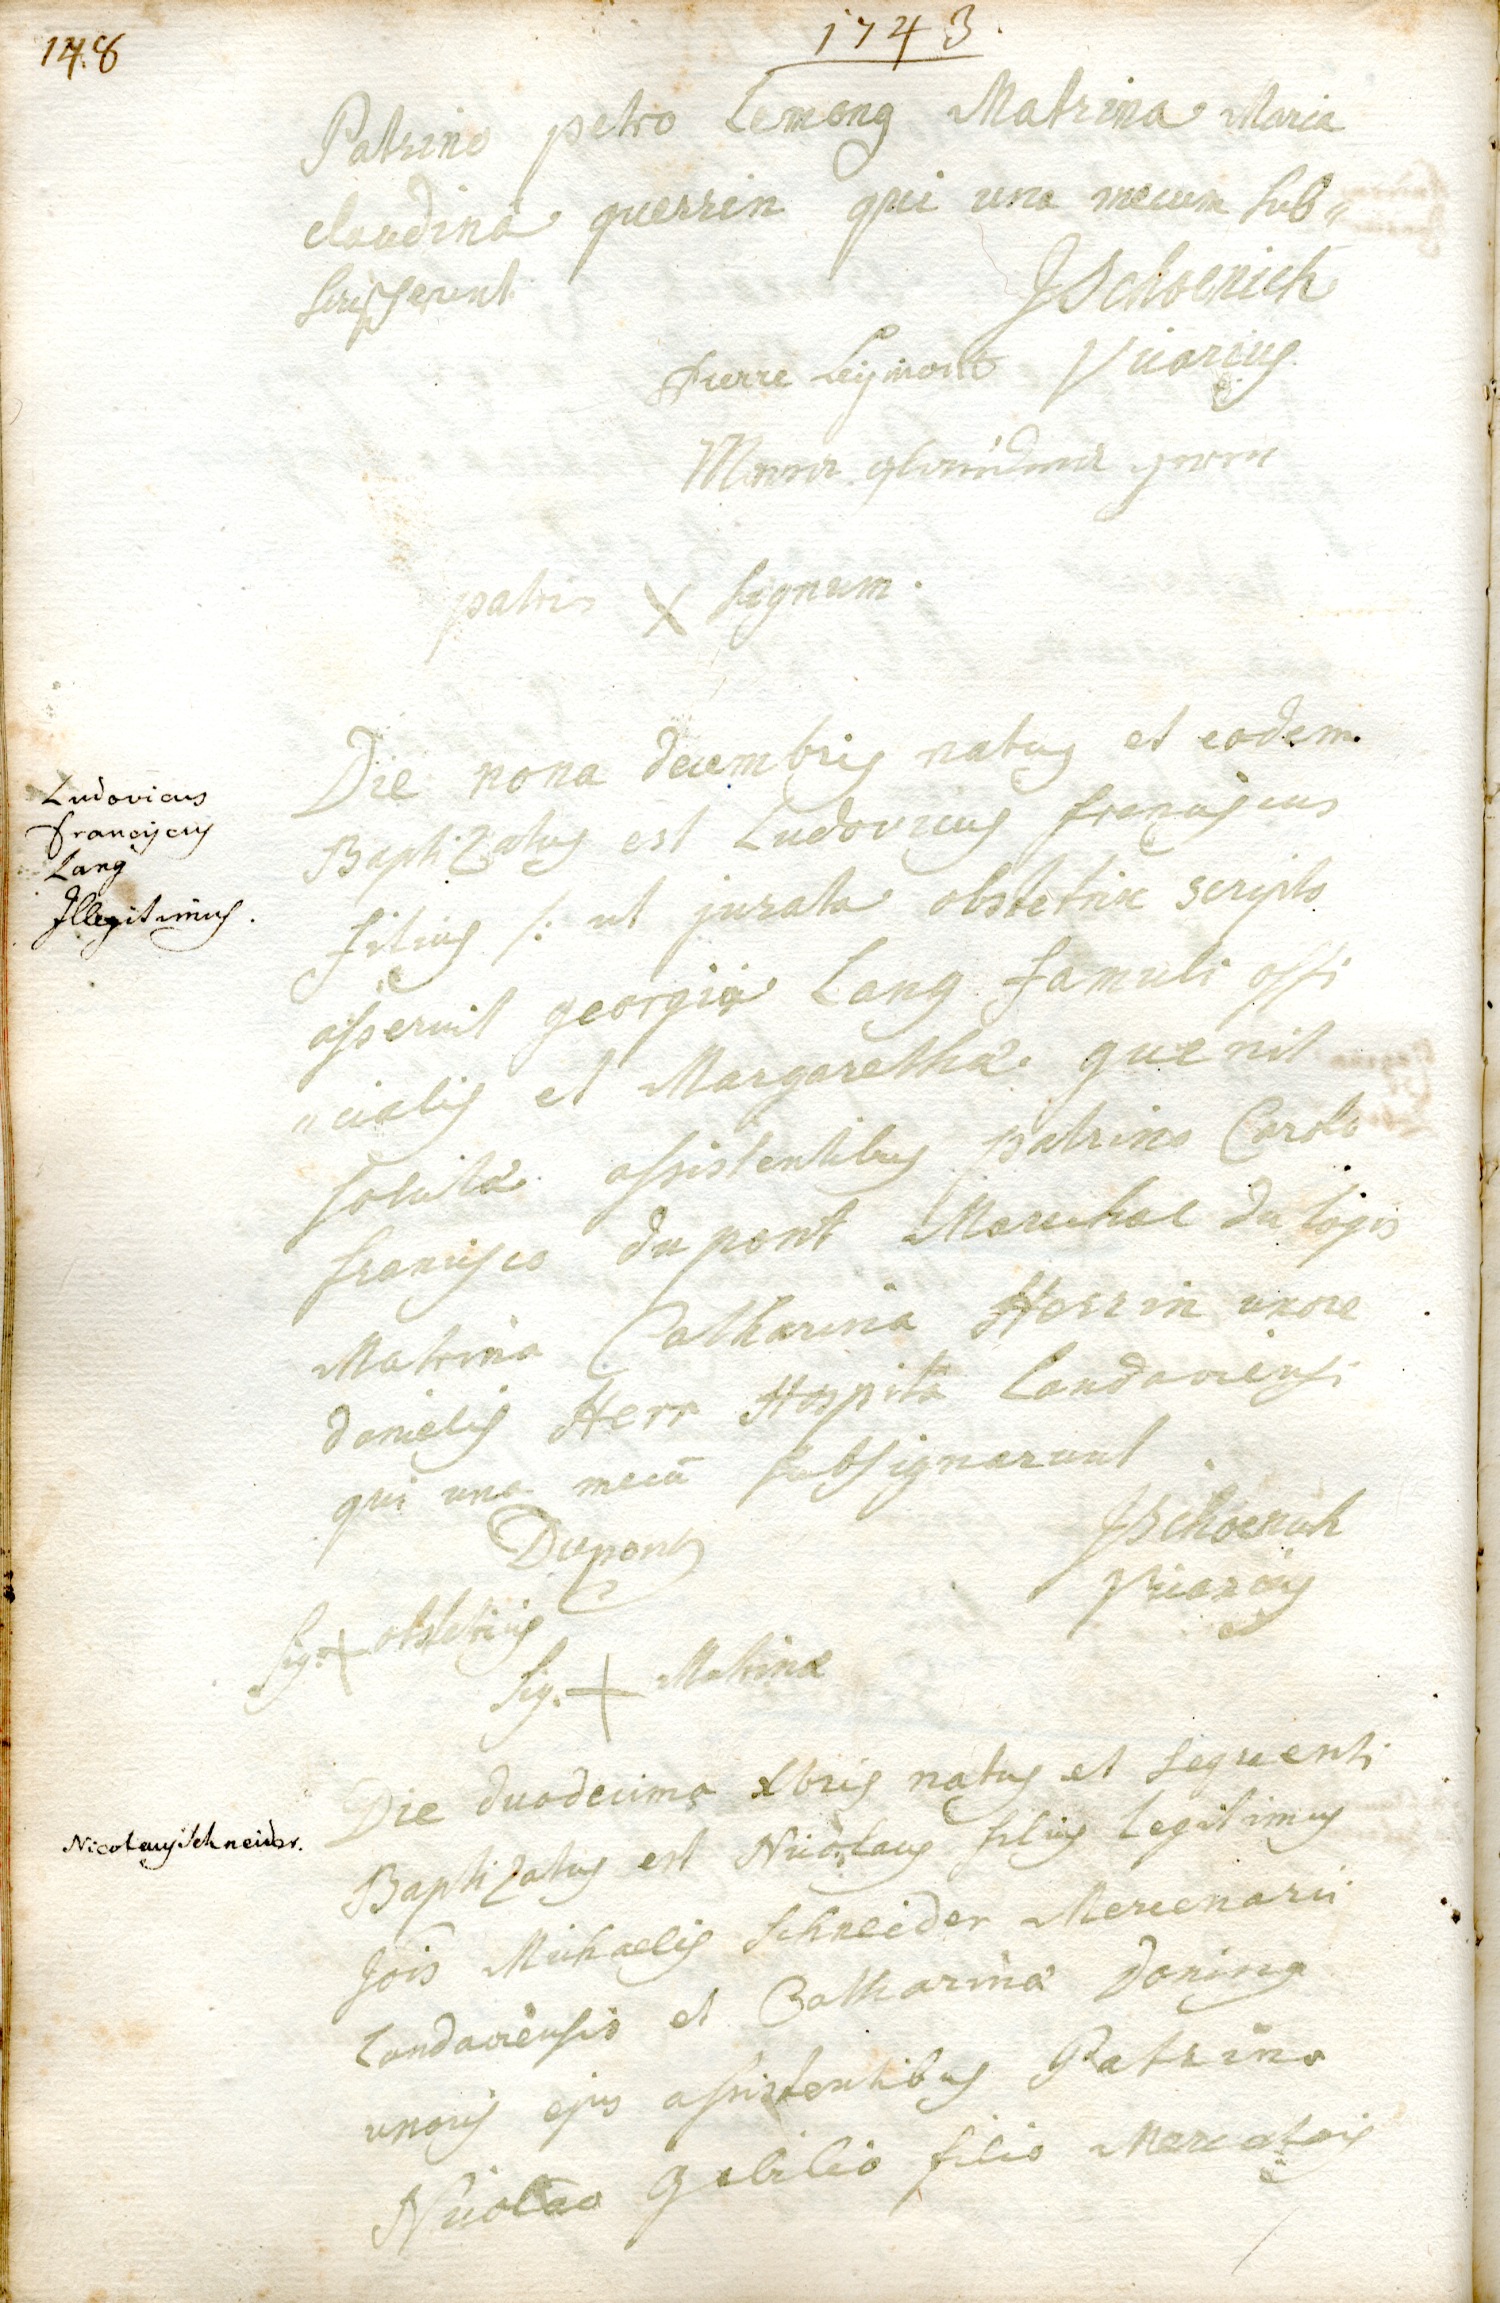 148
1743.
Patrino petro Lemong Matrina Maria
claudina guerrin qui una mecum sub„
scripserunt JSchoenich
Pierre Leymont Vicarius
patris X signum.
Ludovicus
franciscus
Lang
Illegitimus.
Die nona decembris natus et eodem
BaptiZatus est Ludovicus franciscus
filius /: ut jurata obstetrix scripto
asseruit georgii Lang famuli offi
„cialis et Margarethæ guenit
solutæ assistentibus patrino Carolo
francisco du pont Marechal du logis
Matrina Catharina Herrin uxore
danielis Herr Hospitis Landaviensis
qui una mecū subsignarunt
Dupont JSchoenich
Vicarius
Sig. + obstetricis
Sig. + Matrinæ
Nicolaus Schneider.
Die duodecima Xbris natus et sequenti
BaptiZatus est Nicolaus filius legitimus
Jois Michaelis Schneider Mercenarii
Landaviensis et Catharinæ Doning
uxoris ejus assistentibus Patrino
Nicolao filio Mercatoris